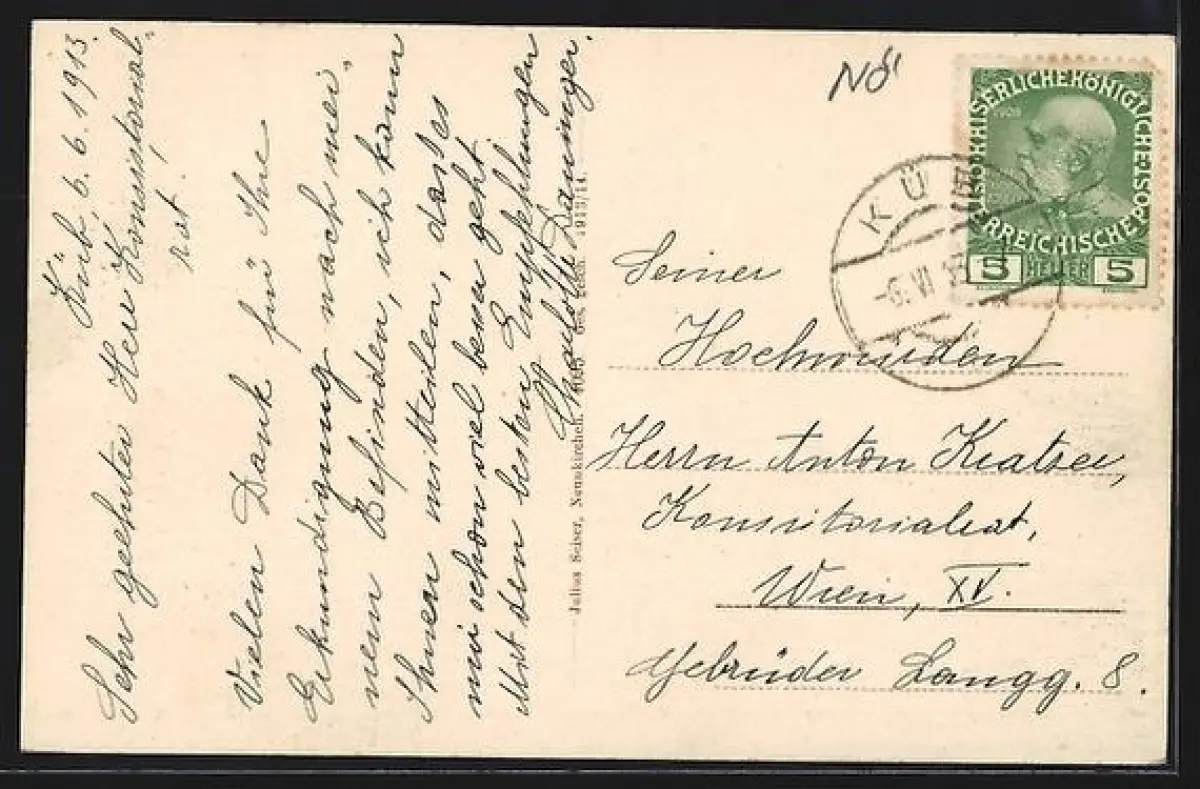 Küb, 6. 6. 1913.
Sehr geehrter Herr Konsistorial-
rat!
Vielen Dank für Ihre
Erkundigung nach mei-
nem Befinden, ich kann
Ihnen mitteilen, dass es
mir schon viel besser geht.
Mit den besten Empfehlungen
Charlotte
Julius Seiser, Neunkirchen.
Ges. gesch. 1913/14.
NÖ
KAISERLICHEKÖNIGLICHE
ÖSTERREICHISCHEPOST
1908
5 HELLER 5
KÜB
-6. VI 13
Seiner
Hochwürden
Herrn Anton
Konsistorialrat,
Wien, XV.
Gebrüder Langg. 8.